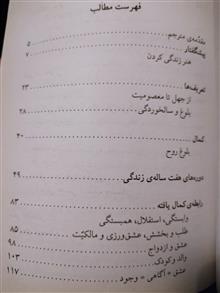 فهرست مطالب
مقدمه‌ی مترجم ۵
پیشگفتار ۷
هنر زندگی کردن
تعریف‌ها ۲۳
از جهل تا معصومیت
بلوغ و سالخوردگی ۲۸
کمال ۴۰
بلوغ روح
دوره‌های هفت ساله‌ی زندگی ۴۹
رابطه‌ی کمال یافته ۸۳
وابستگی، استقلال، همبستگی
طلب و بخشش، عشق‌ورزی و مالکیّت ۸۵
عشق و ازدواج ۹۸
والد و کودک ۱۰۳
عشق + آگاهی = وجود ۱۱۷